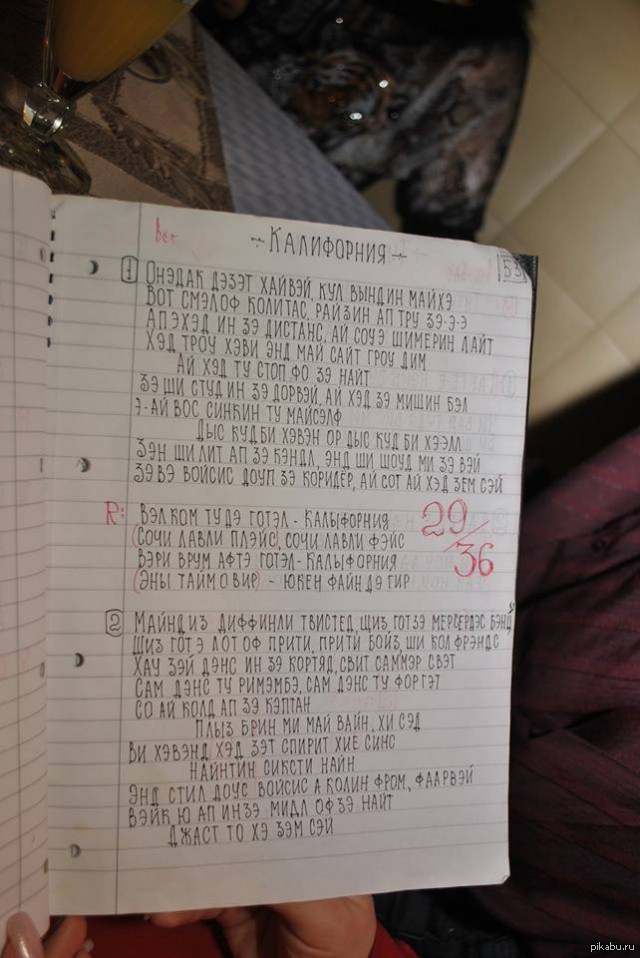 Вет
- КАЛИФОРНИЯ -
53
1 ОНЭДАК ДЭЗЭТ ХАЙВЭЙ, КУЛ ВЫНДИН МАЙХЭ
ВОТ СМЭЛОФ КОЛИТАС, РАЙЗИН АП ТРУ ЗЭ-Э-Э
АП ЭХЭД ИН ЗЭ ДИСТАНС, АЙ СОУЭ ШИМЕРИН ЛАЙТ
ХЭД ТРОУ ХЭВИ ЭНД МАЙ САЙТ ГРОУ ДИМ
АЙ ХЭД ТУ СТОП ФО ЗЭ НАЙТ
ЗЭ ШИ СТУД ИН ЗЭ ДОРВЭЙ, АЙ ХЭД ЗЭ МИШИН БЭЛ
Э-АЙ ВОС СИНКИН ТУ МАЙСЭЛФ
ДЫС КУД БИ ХЭВЭН ОР ДЫС КУД БИ ХЭЭЛЛ
ЗЭН ШИ ЛИТ АП ЗЭ КЭНДЛ, ЭНД ШИ ШОУД МИ ЗЭ ВЭЙ
ЗЭ ВЭ ВОЙСИС ДОУП ЗЭ КОРИДЁР, АЙ СОТ АЙ ХЭД ЗЕМ СЭЙ
R: ВЭЛ КОМ ТУ ДЭ ГОТЭЛ - КАЛЫФОРНИЯ
(СОЧИ ЛАВЛИ ПЛЭЙС), СОЧИ ЛАВЛИ ФЭЙС
ВЭРИ ВРУМ АФТЭ ГОТЭЛ - КАЛЫФОРНИЯ
(ЭНЫ ТАЙМ О ВИР) - ЮКЕН ФАЙН ДЭ ГИР
29/36
2 МАЙНД ИЗ ДИФФИНЛИ ТВИСТЕД, ШИЗ ГОТ ЗЭ МЕРСЕРДЭС БЭНД
ШИЗ ГОТ Э ЛОТ ОФ ПРИТИ, ПРИТИ БОЙЗ, ШИ КОЛ ФРЭНДС
ХАУ ЗЭЙ ДЭНС ИН ЗЭ КОРТЯД, СВИТ САММЭР СВЭТ
САМ ДЭНС ТУ РИМЭМБЭ, САМ ДЭНС ТУ ФОРГЭТ
СО АЙ КОЛД АП ЗЭ КЭПТАН
ПЛЫЗ БРИН МИ МАЙ ВАЙН, ХИ СЭД
ВИ ХЭВЭНД ХЭД ЗЭТ СПИРИТ ХИЕ СИНС
НАЙНТИН СИКСТИ НАЙН
ЭНД СТИЛ ДОУС ВОЙСИС А КОЛИН ФРОМ, ФААРВЭЙ
ВЭЙК Ю АП ИН ЗЭ МИДЛ ОФ ЗЭ НАЙТ
ДЖАСТ ТО ХЭ ЗЭМ СЭЙ
pikabu.ru